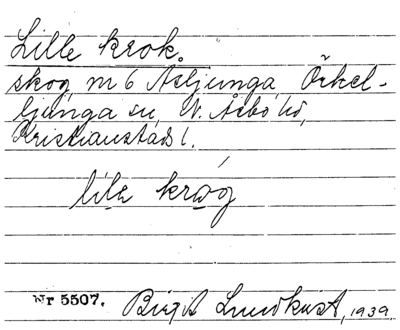 Lille krok.
skog, m 6 Åsljunga, Örkel-
ljunga sn, N. Åsbo hd,
Kristianstads l.
lilə krǝg
Nr 5507. Birgit Lundkvist, 1939.